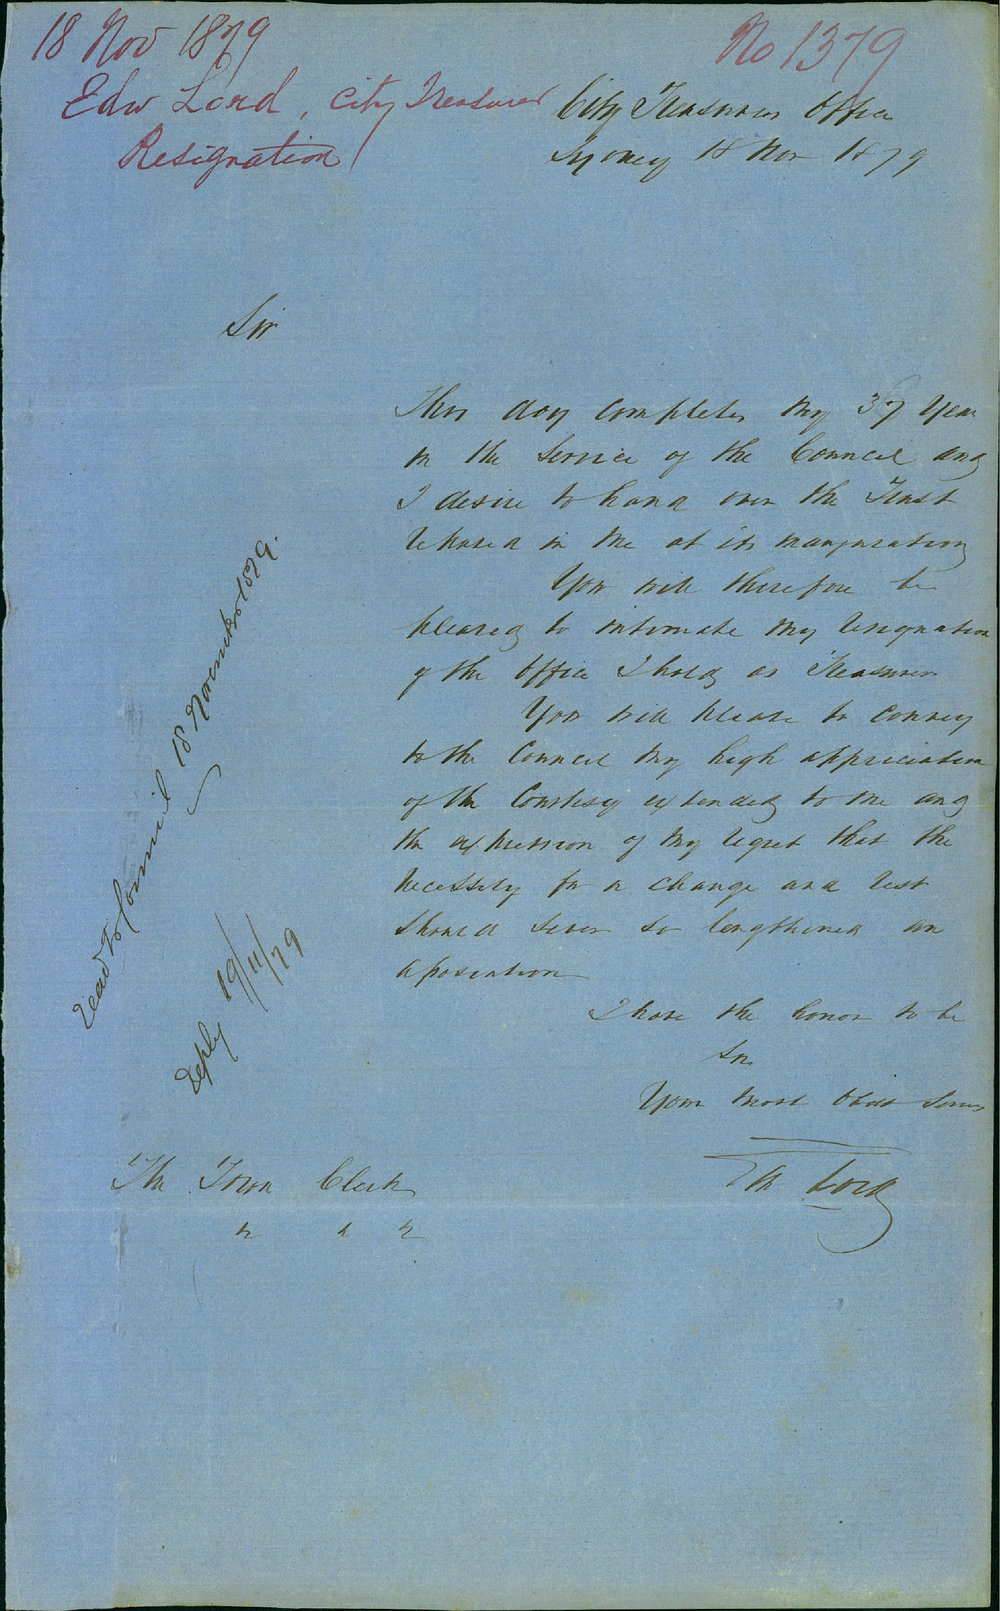 18 Nov 1879
No 1379
Edw Lord, City Treasurer
Resignation
City Treasurers Office
Sydney 18 Nov 1879
Sir
This day completes my 37 Year
in the Service of the Council and
I desire to hand over the Trust
reposed in me at its inauguration
You will therefore be
pleased to intimate my resignation
of the Office I hold as Treasurer
You will please to convey
to the Council my high appreciation
of the Courtesy extended to me and
the expression of my regret that the
necessity for a change and rest
should sever so lengthened an
association
I have the honor to be
Sir
Your most Obdt Servt
Ed Lord
The Town Clerk
Read to Council 18 November 1879.
reply 19/11/79